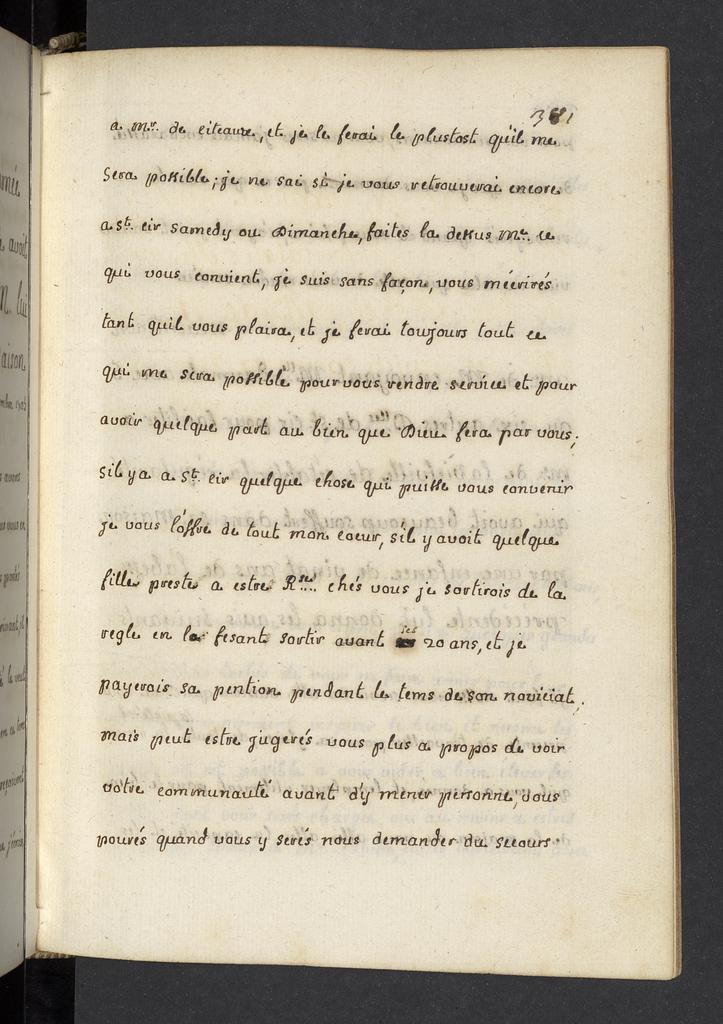 381
a Mr. de citeaux, et je le ferai le plustost qu'il me
sera possible; je ne sai si je vous retrouverai encore
a st. cir samedy ou Dimanche, faites la dessus Me. ce
qui vous convient, je suis sans façon, vous m'écrirés
tant quil vous plaira, et je ferai toujours tout ce
qui me sera possible pour vous rendre service et pour
avoir quelque part au bien que Dieu fera par vous;
sil y a a St. cir quelque chose qui puisse vous convenir
je vous l'offre de tout mon coeur, s'il y avoit quelque
fille preste a estre Rse. chés vous je sortirois de la
regle en la fesant sortir avant ses 20 ans, et je
payerois sa pention pendant le tems de son noviciat;
mais peut estre jugerés vous plus a propos de voir
votre communauté avant d'y mener personne, vous
pourés quand vous y serés nous demander du secours